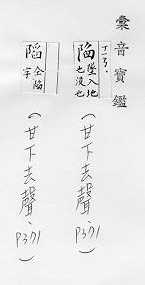 彙音寶鑑
陷 墜入地
也沒也
(甘下去聲、P371)
陷 仝陷
字
(甘下去聲、P371)